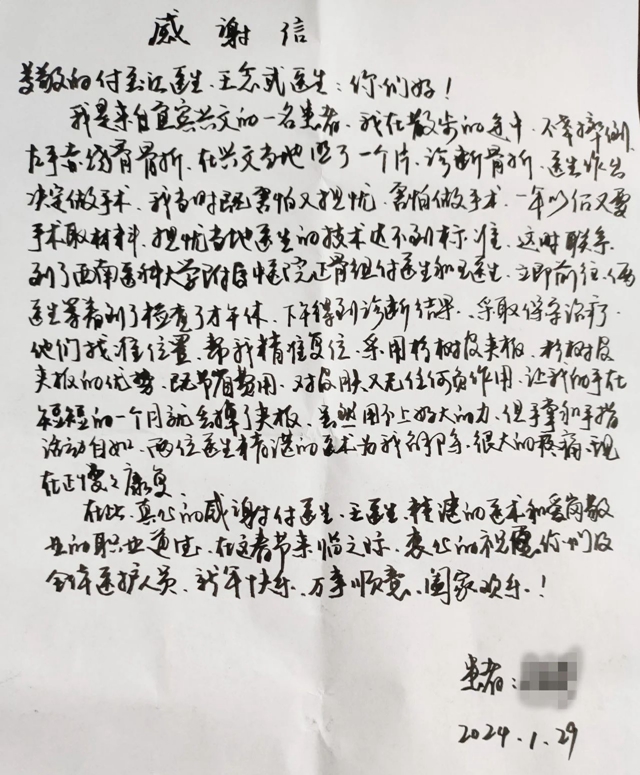 感谢信
尊敬的付玉江医生、王念武医生：你们好！
我是来自宜宾兴文的一名患者、我在散步的途中、不幸摔倒、
左手桡骨骨折、在兴文当地照了一个片、诊断骨折、医生作出
决定做手术、我当时既害怕又担忧、害怕做手术、一年以后又要
手术取材料、担忧当地医生的技术达不到标准、这时联系
到了西南医科大学附属中医院正骨组付医生和王医生、立即前往、俩
医生等着到了检查了才午休、下午得到诊断结果、采取保守治疗、
他们找准位置、帮我精准复位、采用杉树皮夹板、杉树皮
夹板的优势、既节省费用、对皮肤又无任何负作用、让我的手在
短短的一个月就去掉了夹板、虽然用不上好大的力、但手掌和手指
活动自如、两位医生精湛的医术为我解除了很大的疼痛、现
在正慢慢康复、
在此、真心的感谢付医生、王医生、精湛的医术和爱岗敬
业的职业道德、在这春节来临之际、衷心的祝愿你们及
全体医护人员、新年快乐、万事顺意、阖家欢乐、！
患者：
2024.1.29